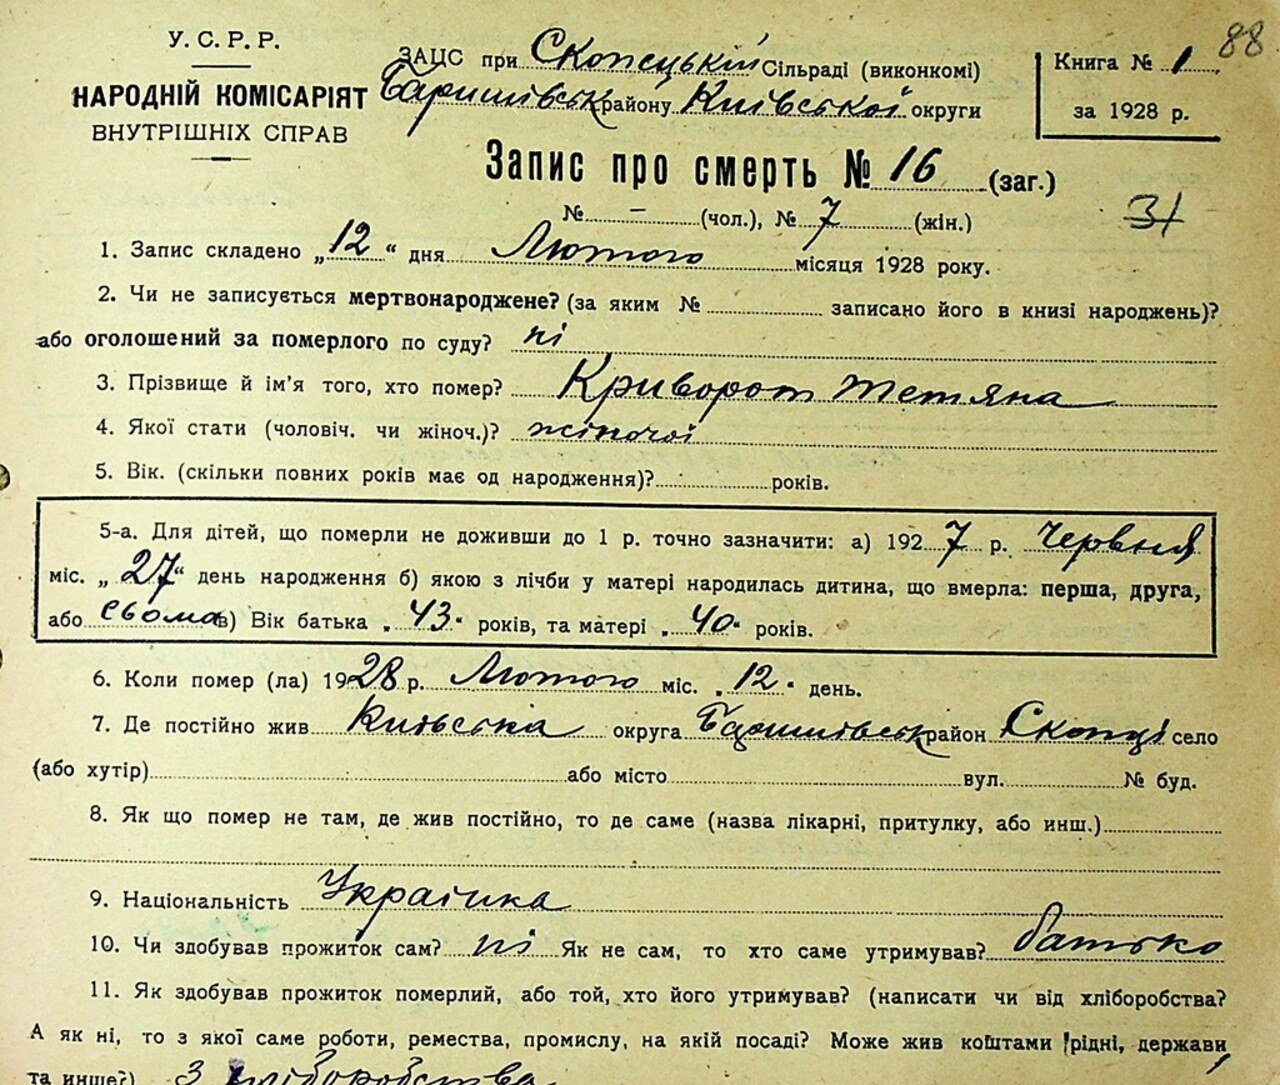 88
У. С. Р. Р.
НАРОДНІЙ КОМІСАРІЯТ
ВНУТРІШНІХ СПРАВ
ЗАЦС при Скопецькій Сільраді (виконкомі)
Баришівськ району Київської округи
Книга № 1
за 1928 р.
Запис про смерть № 16 (заг.)
№ – (чол.), № 7 (жін.)
31
1. Запис складено „12“ дня Лютого місяця 1928 року.
2. Чи не записується мертвонароджене? (за яким № записано його в книзі народжень)?
або оголошений за померлого по суду? ні
3. Прізвище й ім'я того, хто помер? Криворот Тетяна
4. Якої статі (чоловіч. чи жіноч.)? жіночої
5. Вік. (скільки повних років має од народження)? років.
5-а. Для дітей, що померли не доживши до 1 р. точно зазначити: а) 1927 р. Червня
міс. „27“ день народження б) якою з лічби у матері народилась дитина, що вмерла: перша, друга,
або сьома в) Вік батька „43“ років, та матері „40“ років.
6. Коли помер (ла) 1928 р. Лютого міс. „12“ день.
7. Де постійно жив Київська округа Баришівськ район Скопці село
(або хутір) або місто вул. № буд.
8. Як що помер не там, де жив постійно, то де саме (назва лікарні, притулку, або инш.)
9. Національність Українка
10. Чи здобував прожиток сам? ні Як не сам, то хто саме утримував? батько
11. Як здобував прожиток померлий, або той, хто його утримував? (написати чи від хліборобства?
А як ні, то з якої саме роботи, ремества, промислу, на якій посаді? Може жив коштами рідні, держави,
та инше?) З хліборобства